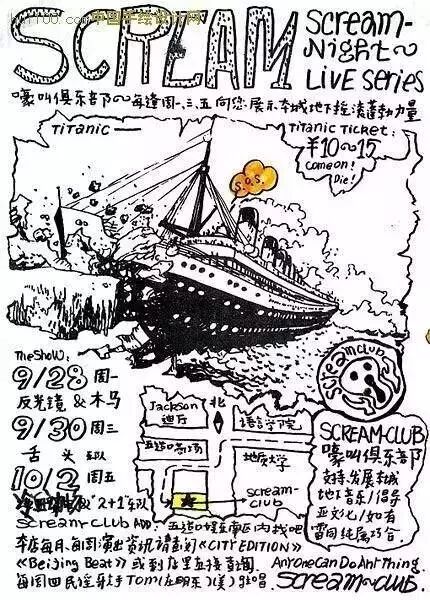 SCREAM
Scream-
Night~
Live Series
嚎叫俱乐部~每逢周一、三、五向您展示本城地下摇滚蓬勃力量
Titanic—
Titanic Ticket:
¥10~15
Come on!
Die!
S.O.S.
The Show:
9/28 周一
反光镜&木马
9/30 周三
舌头 队
10/2 周五
"2+1"乐队
Jackson
迪厅
北
语言学院
五道口商场
地质大学
Scream-
club
Screamclub
SCREAM-CLUB
嚎叫俱乐部
支持、发展本城
地下音乐/倡导
亚文化/如有
雷同纯属巧合.
Scream-Club ADD:
本店每月、每周演出资讯请查阅《CITY EDITION》
《Beijing Beat》或到店里直接查阅.
Anyone Can Do Anything.
每周四民谣歌手Tom
Scream-Club.